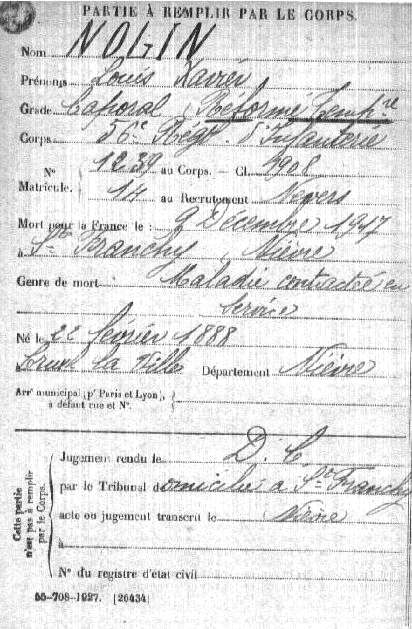 PARTIE À REMPLIR PAR LE CORPS.
Nom NOLIN
Prénoms Louis Xavier
Grade Caporal (Réformé Temp.re
Corps 56e Régt d'Infanterie
N° 1239 au Corps. — Cl. 1908
Matricule. 14 au Recrutement Nevers
Mort pour la France le : 9 Décembre 1917
à St Franchy Nièvre
Genre de mort Maladie contractée en
Service
Né le 22 février 1888
à Crux la Ville Département Nièvre
Arrt municipal (pr Paris et Lyon),
à défaut rue et N°.
Cette partie n'est pas à remplir par le Corps.
Jugement rendu le D. C
par le Tribunal domicilié à St Franchy
acte ou jugement transcrit le Nièvre
à
N° du registre d'état civil
55-708-1927. [26434]